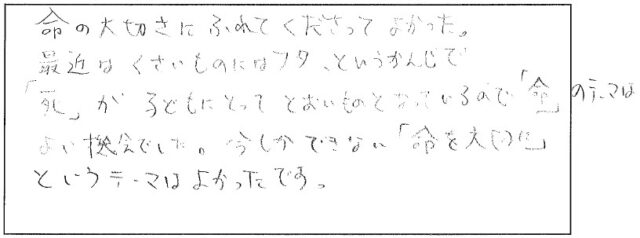 命の大切さにふれてくださってよかった。
最近はくさいものにはフタ、というかんじで
「死」が子どもにとってとおいものとなっているので「命」のテーマは
よい機会でした。今しかできない「命を大切に」
というテーマはよかったです。